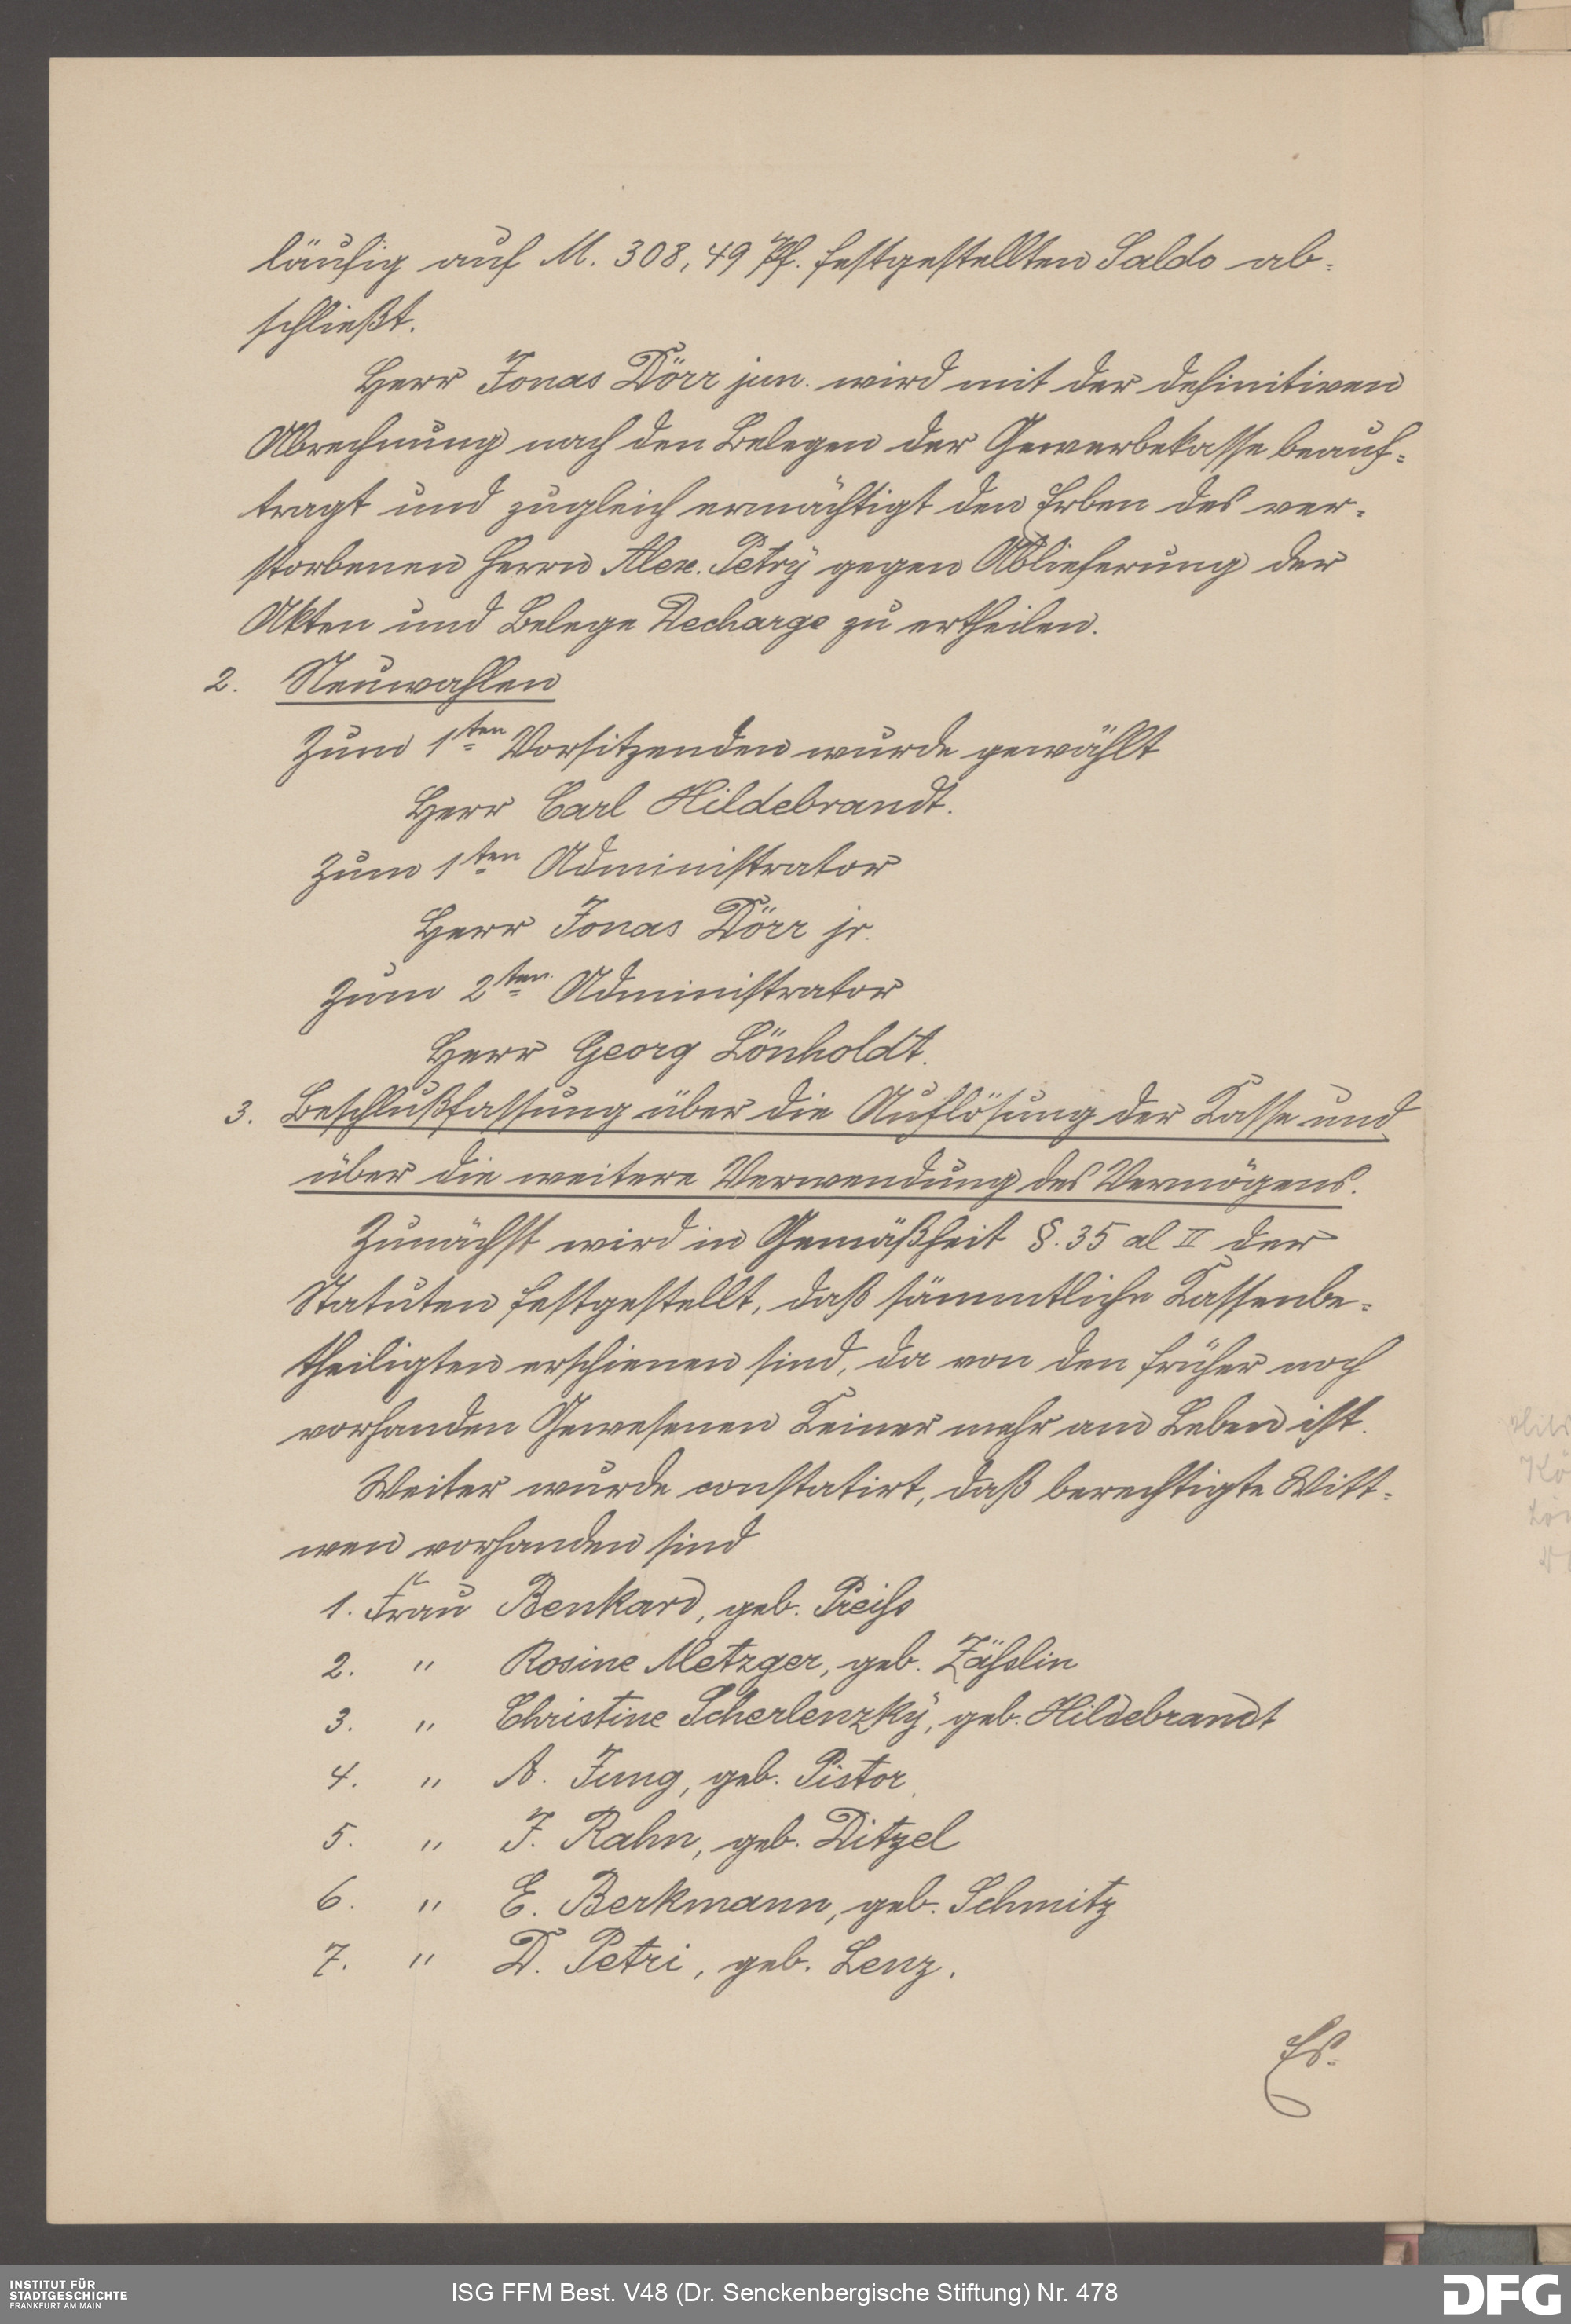 läufig auf M. 308,49 Pf. festgestellten Saldo ab-
schließt.
Herr Jonas Dörr jun. wird mit der definitiven
Abrechnung nach den Belegen der Gewerbekasse beauf-
tragt und zugleich ermächtigt den Erben des ver-
storbenen Herrn Alex. Petry gegen Ablieferung der
Akten und Belege Decharge zu ertheilen.
2. Neuwahlen
Zum 1ten Vorsitzenden wurde gewählt
Herr Carl Hildebrandt.
Zum 1ten Administrator
Herr Jonas Dörr jr.
Zum 2ten Administrator
Herr Georg Lönholdt.
3. Beschlußfassung über die Auflösung der Kasse und
über die weitere Verwendung des Vermögens.
Zunächst wird in Gemäßheit §. 35 al II der
Statuten festgestellt, daß sämmtliche Kassenbe-
theiligten erschienen sind, da von den früher noch
vorhanden Gewesenen Keiner mehr am Leben ist.
Weiter wurde constatirt, daß berechtigte Witt-
wen vorhanden sind
1. Frau Benkard, geb. Preiss
2. " Rosine Metzger, geb. Zässlin
3. " Christine Scherlenzky, geb. Hildebrandt
4. " A. Jung, geb. Pistor
5. " J. Rahn, geb. Ditzel
6. " E. Berkmann, geb. Schmitz
7. " D. Petri, geb. Lenz.
Es
INSTITUT FÜR
STADTGESCHICHTE
FRANKFURT AM MAIN
ISG FFM Best. V48 (Dr. Senckenbergische Stiftung) Nr. 478
DFG